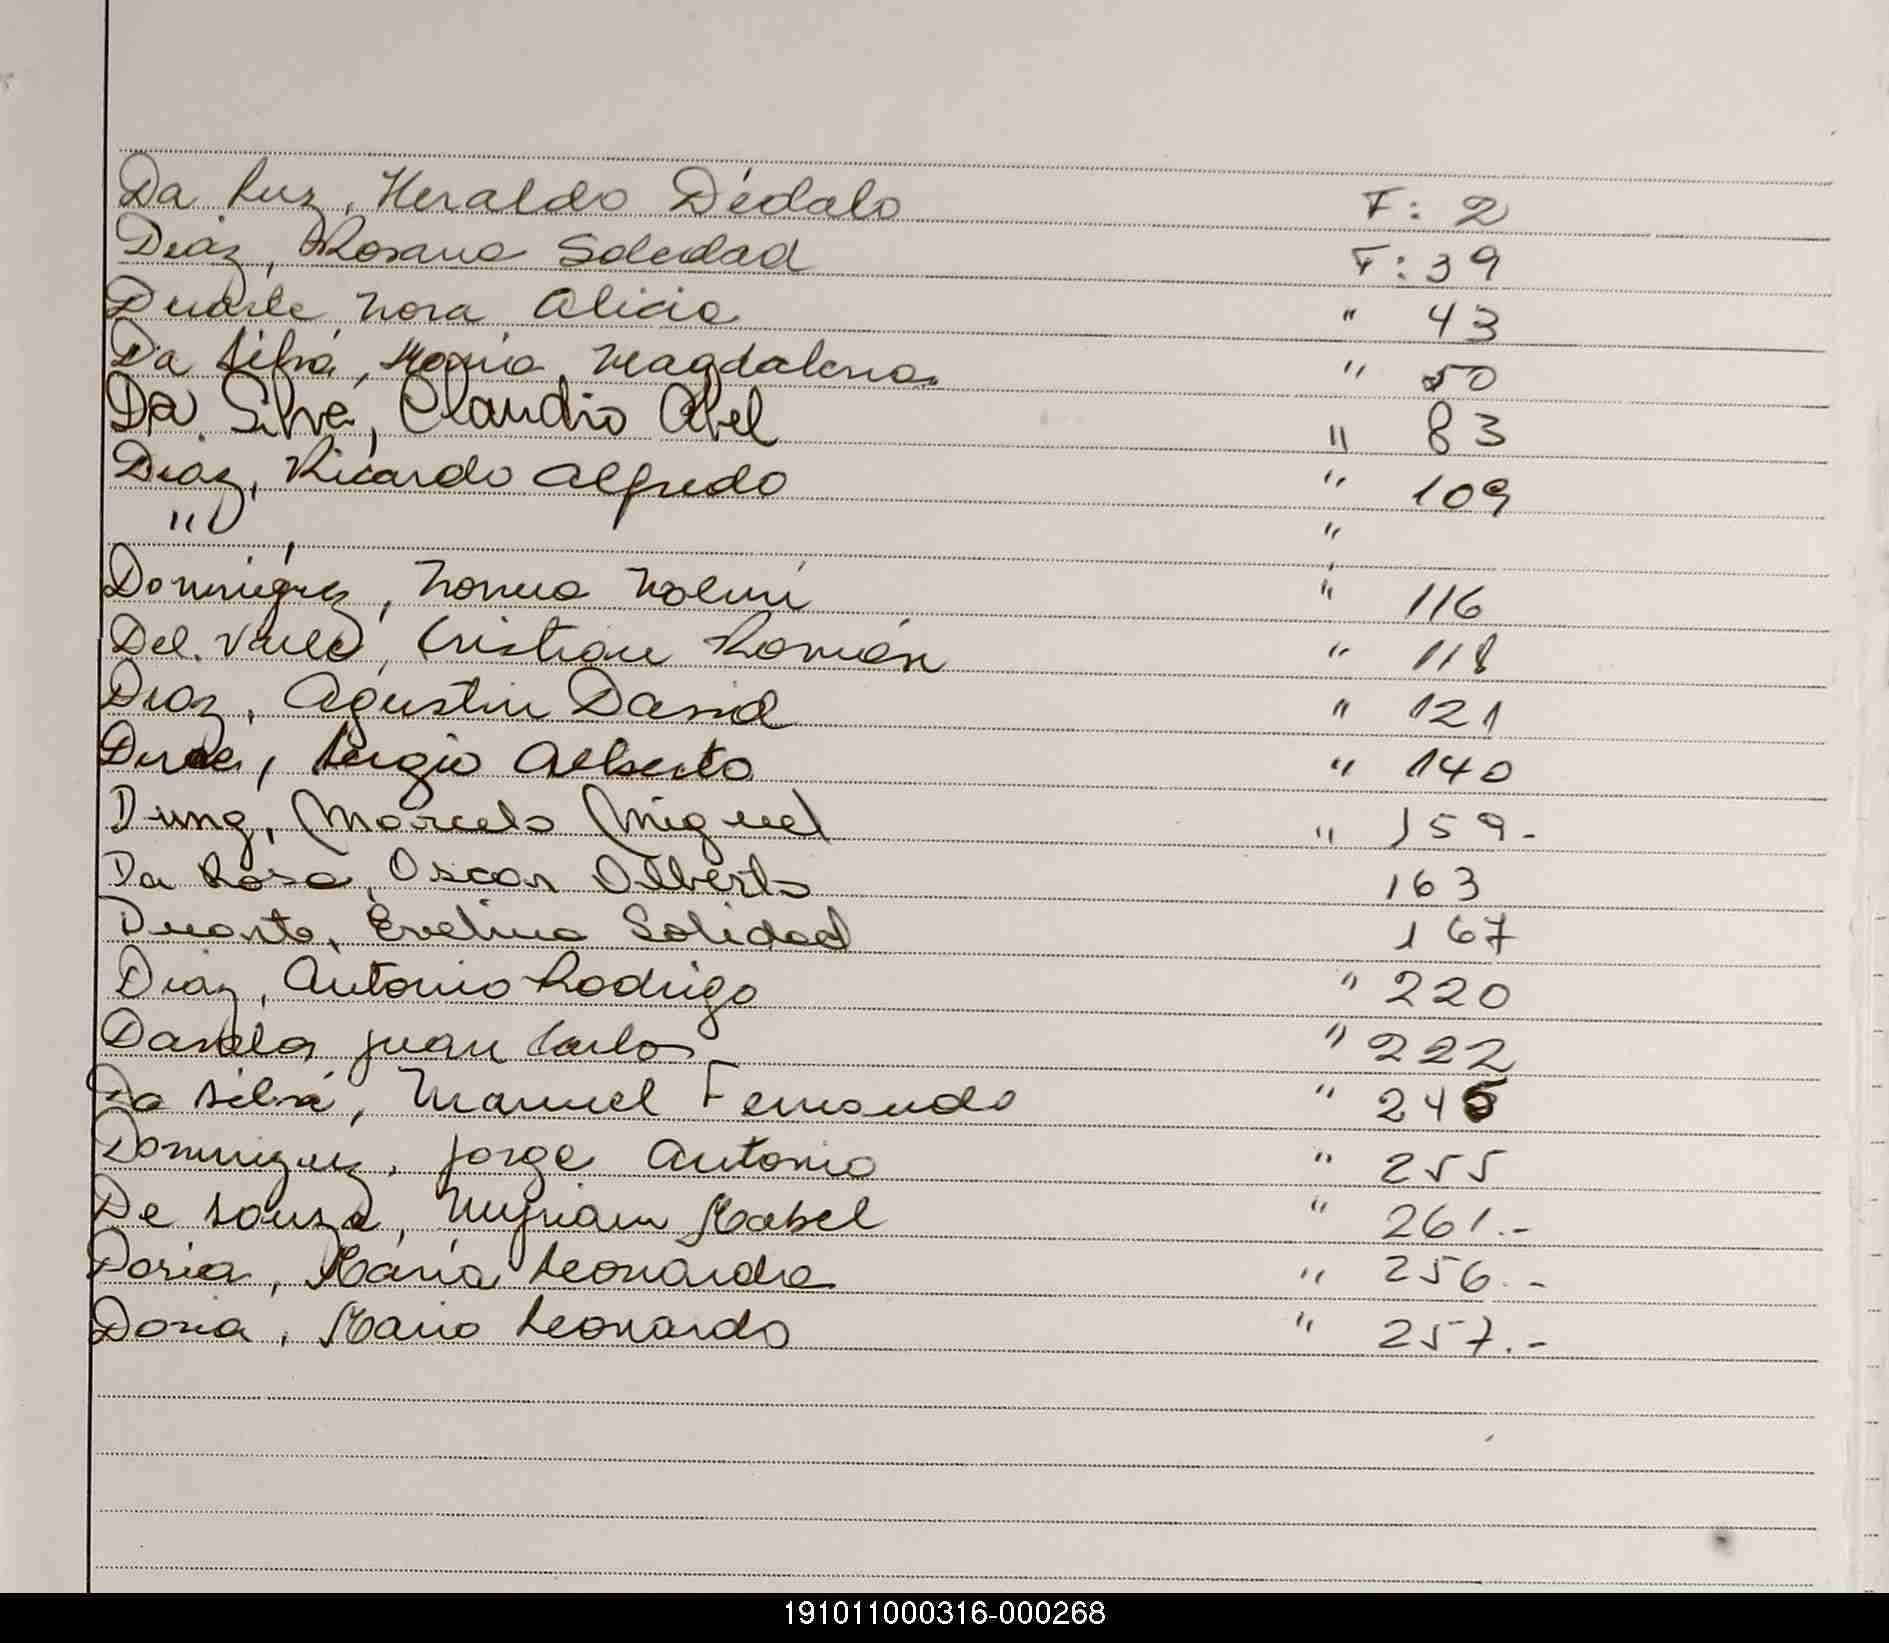 Da Luz, Heraldo Dédalo F: 2
Diaz, Rosana Soledad F: 39
Duarte Nora Alicia " 43
Da Silva, Maria Magdalena " 50
Da Silva, Claudio Abel " 83
Diaz, Ricardo Alfredo " 109
" , "
Dominguez, Norma Noemi " 116
Del Valle, Cristian Román " 118
Diaz, Agustin David " 121
Sergio Alberto " 140
Dung, Marcelo Miguel " 159.-
Da Rosa, Oscar Alberto 163
Duarte, Evelina Soledad 167
Diaz, Antonio Rodrigo " 220
Juan Carlos " 222
Da Silva, Manuel Fernando "
Dominguez, Jorge Antonio " 255
De Souza, Myriam Mabel " 261.-
Doria, María Leonarda " 256.-
Doria, Mario Leonardo " 257.-
191011000316-000268